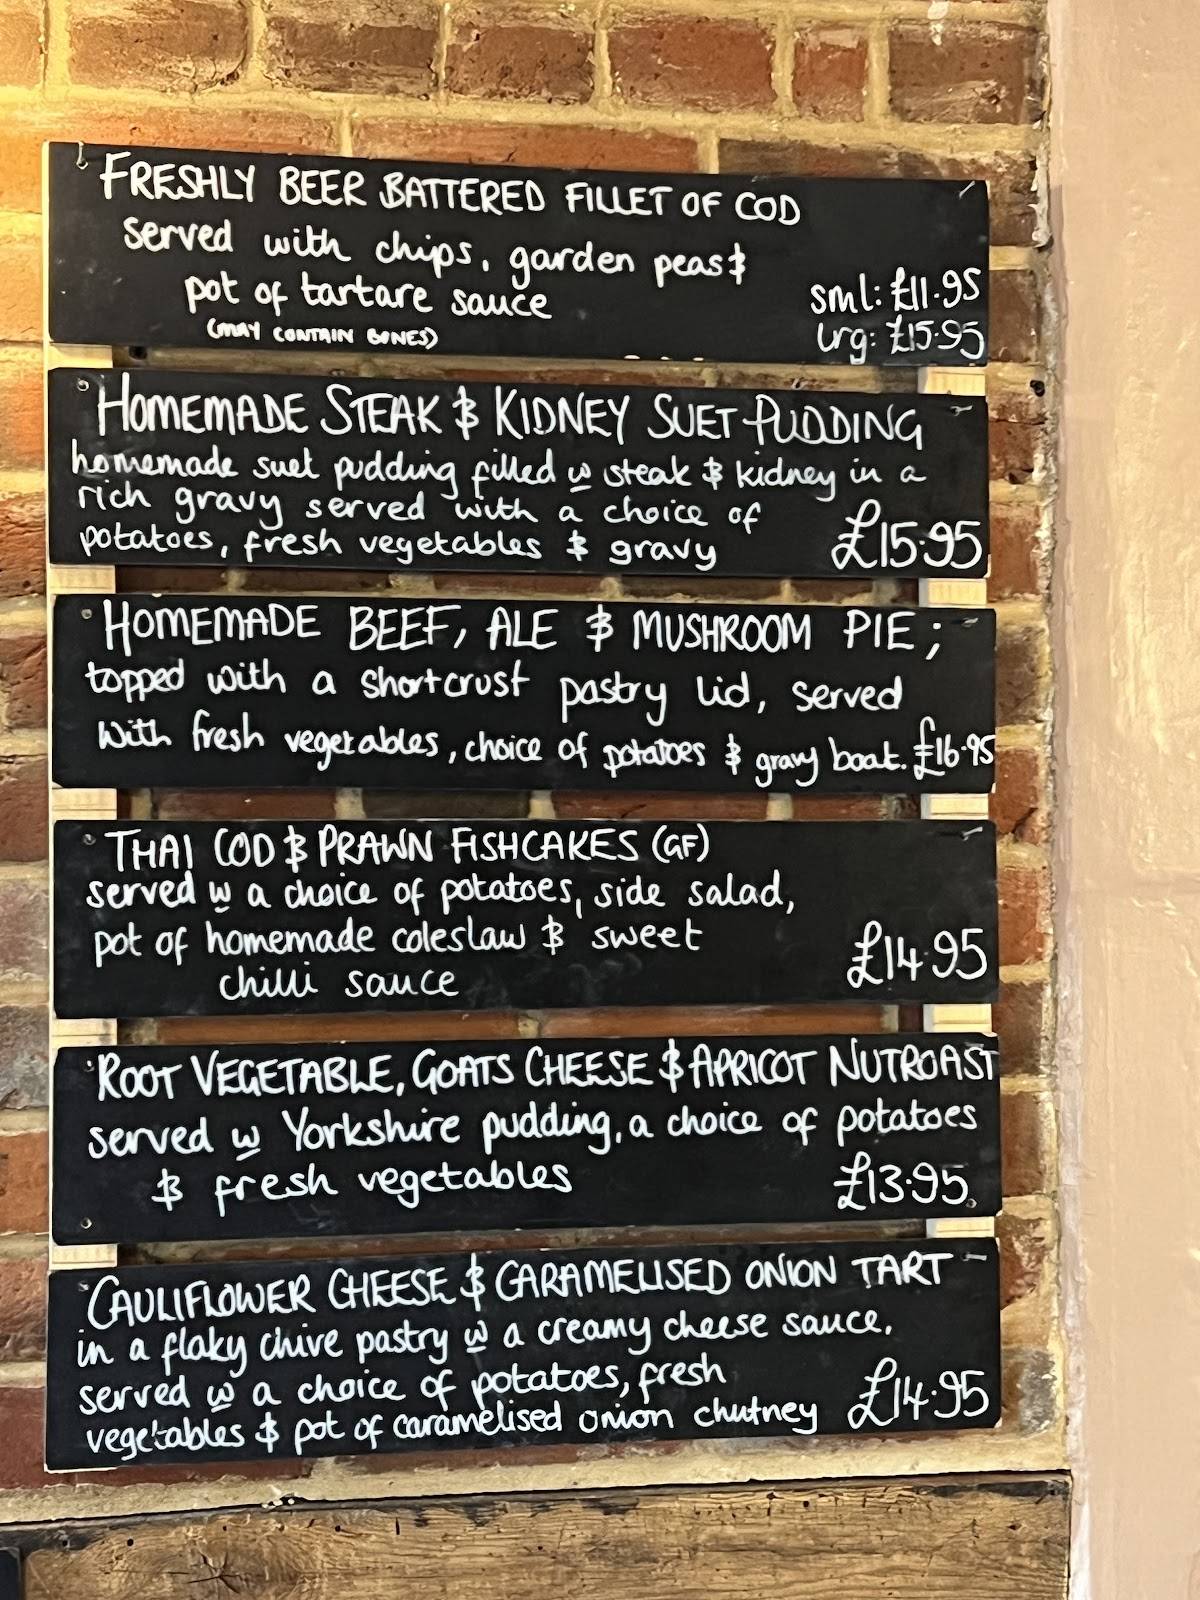 FRESHLY BEER BATTERED FILLET OF COD
served with chips, garden peas &
pot of tartare sauce
(MAY CONTAIN BONES)
sml: £11.95
lrg: £15.95
HOMEMADE STEAK & KIDNEY SUET PUDDING
homemade suet pudding filled w steak & kidney in a
rich gravy served with a choice of
potatoes, fresh vegetables & gravy
£15.95
HOMEMADE BEEF, ALE & MUSHROOM PIE;
topped with a shortcrust pastry lid, served
with fresh vegetables, choice of potatoes & gravy boat. £16.95
THAI COD & PRAWN FISHCAKES (GF)
served w a choice of potatoes, side salad,
pot of homemade coleslaw & sweet
chilli sauce
£14.95
ROOT VEGETABLE, GOATS CHEESE & APRICOT NUTROAST
served w Yorkshire pudding, a choice of potatoes
& fresh vegetables
£13.95
CAULIFLOWER CHEESE & CARAMELISED ONION TART
in a flaky chive pastry w a creamy cheese sauce.
served w a choice of potatoes, fresh
vegetables & pot of caramelised onion chutney
£14.95